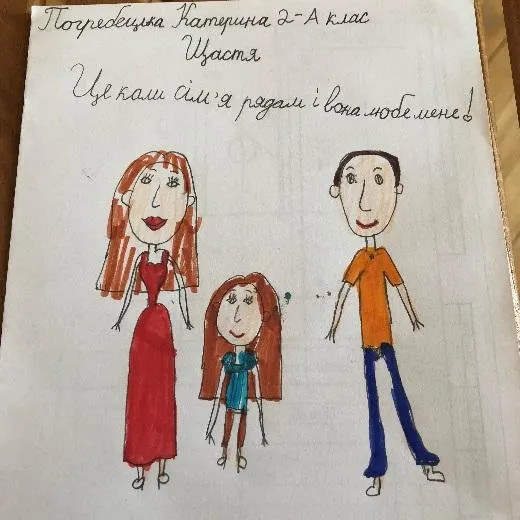 Погребецька Катерина 2-А клас
Щастя
Це коли сім'я рядом і вона любе мене!